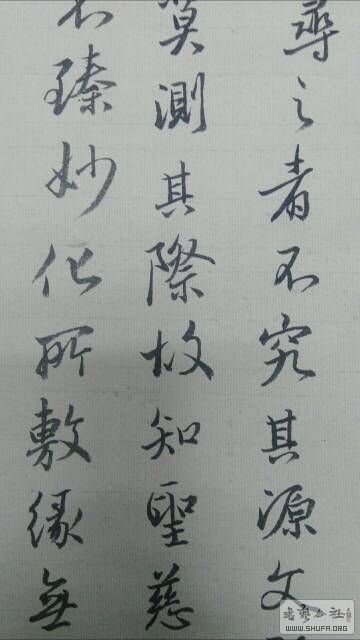 尋之者不究其源文
莫測其際故知聖慈
不臻妙化所敷緣無
WWW.SHUFA.ORG